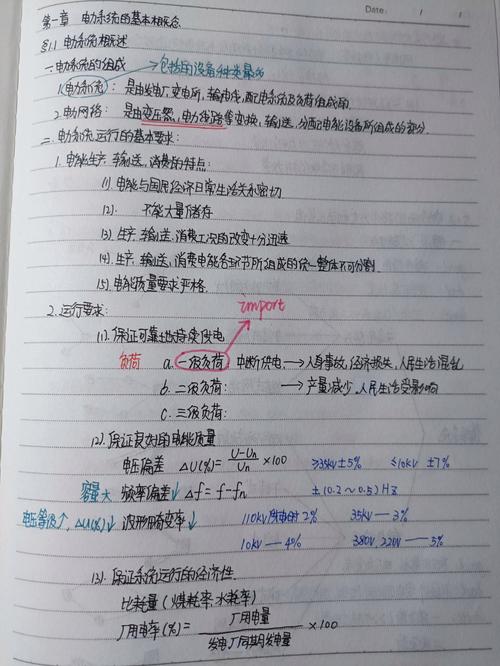 Date: / /
第一章 电力系统的基本概念
§1.1 电力系统概述
一.电力系统的组成
包括的设备种类最多
1.电力系统: 是由发电厂,变电所,输电线,配电系统及负荷组成的.
2.电力网络: 是由变压器,电力线路等变换,输送,分配电能设备所组成的部分.
二.电力系统运行的基本要求:
1. 电能生产,输送,消费的特点:
(1).电能与国民经济日常生活关系密切
(2). 不能大量储存
(3).生产,输送,消费工况的改变十分迅速
(4).生产,输送,消费电能各环节所组成的统一整体不可分割
(5).电能质量要求严格.
import
2.运行要求:
(1).保证可靠地持续供电
负荷 a.一级负荷: 中断供电 → 人身事故,经济损失,人民生活混乱
b.二级负荷: → 产量减少,人民生活受影响
c.三级负荷:
(2).保证良好的电能质量
电压偏差 ΔU(%)= (U-Un)/Un ×100 ≥35kV±5% ≤10kV ±7%
容量大 频率偏差↓ Δf=f-fn ±(0.2~0.5)Hz
电压等级↑,ΔU(%)↓ 波形畸变率↓ 110kV 2% 35kV—3%
10kV—4% 380V,220V—5%
(3).保证系统运行的经济性.
比耗量(煤耗率,水耗率)
厂用电率(%)= 厂用电量/发电厂同期发电量 ×100